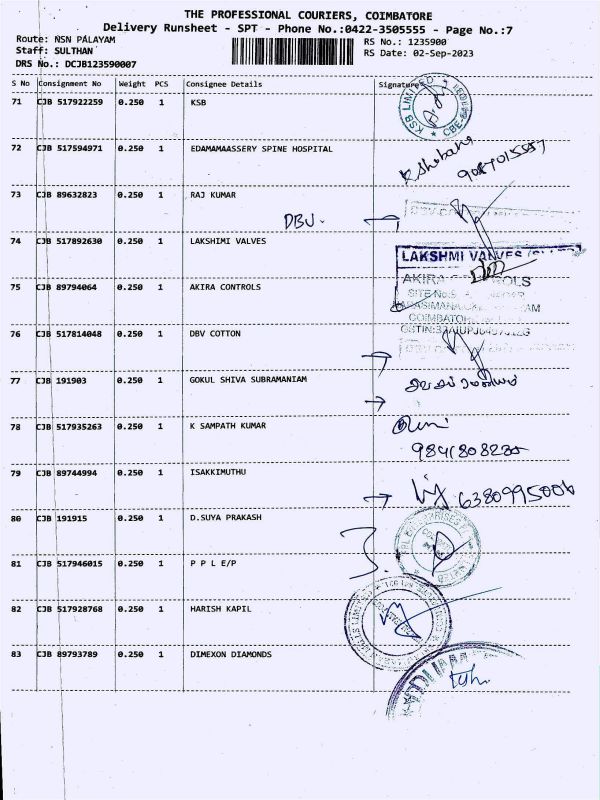 THE PROFESSIONAL COURIERS, COIMBATORE
Delivery Runsheet - SPT - Phone No.:0422-3505555 - Page No.:7
Route: NSN PALAYAM RS No.: 1235900
Staff: SULTHAN RS Date: 02-Sep-2023
DRS No.: DCJB123590007
S No Consignment No Weight PCS Consignee Details Signature
71 CJB 517922259 0.250 1 KSB
KSB LIMITED
72 CJB 517594971 0.250 1 EDAMAMAASSERY SPINE HOSPITAL
73 CJB 89632823 0.250 1 RAJ KUMAR
DBV.
74 CJB 517892630 0.250 1 LAKSHIMI VALVES
LAKSHMI VALVES
75 CJB 89794064 0.250 1 AKIRA CONTROLS
AKIRA
COIMBATORE
76 CJB 517814048 0.250 1 DBV COTTON
77 CJB 191903 0.250 1 GOKUL SHIVA SUBRAMANIAM
78 CJB 517935263 0.250 1 K SAMPATH KUMAR
79 CJB 89744994 0.250 1 ISAKKIMUTHU
6380995006
80 CJB 191915 0.250 1 D.SUYA PRAKASH
81 CJB 517946015 0.250 1 P P L E/P
82 CJB 517928768 0.250 1 HARISH KAPIL
83 CJB 89793789 0.250 1 DIMEXON DIAMONDS